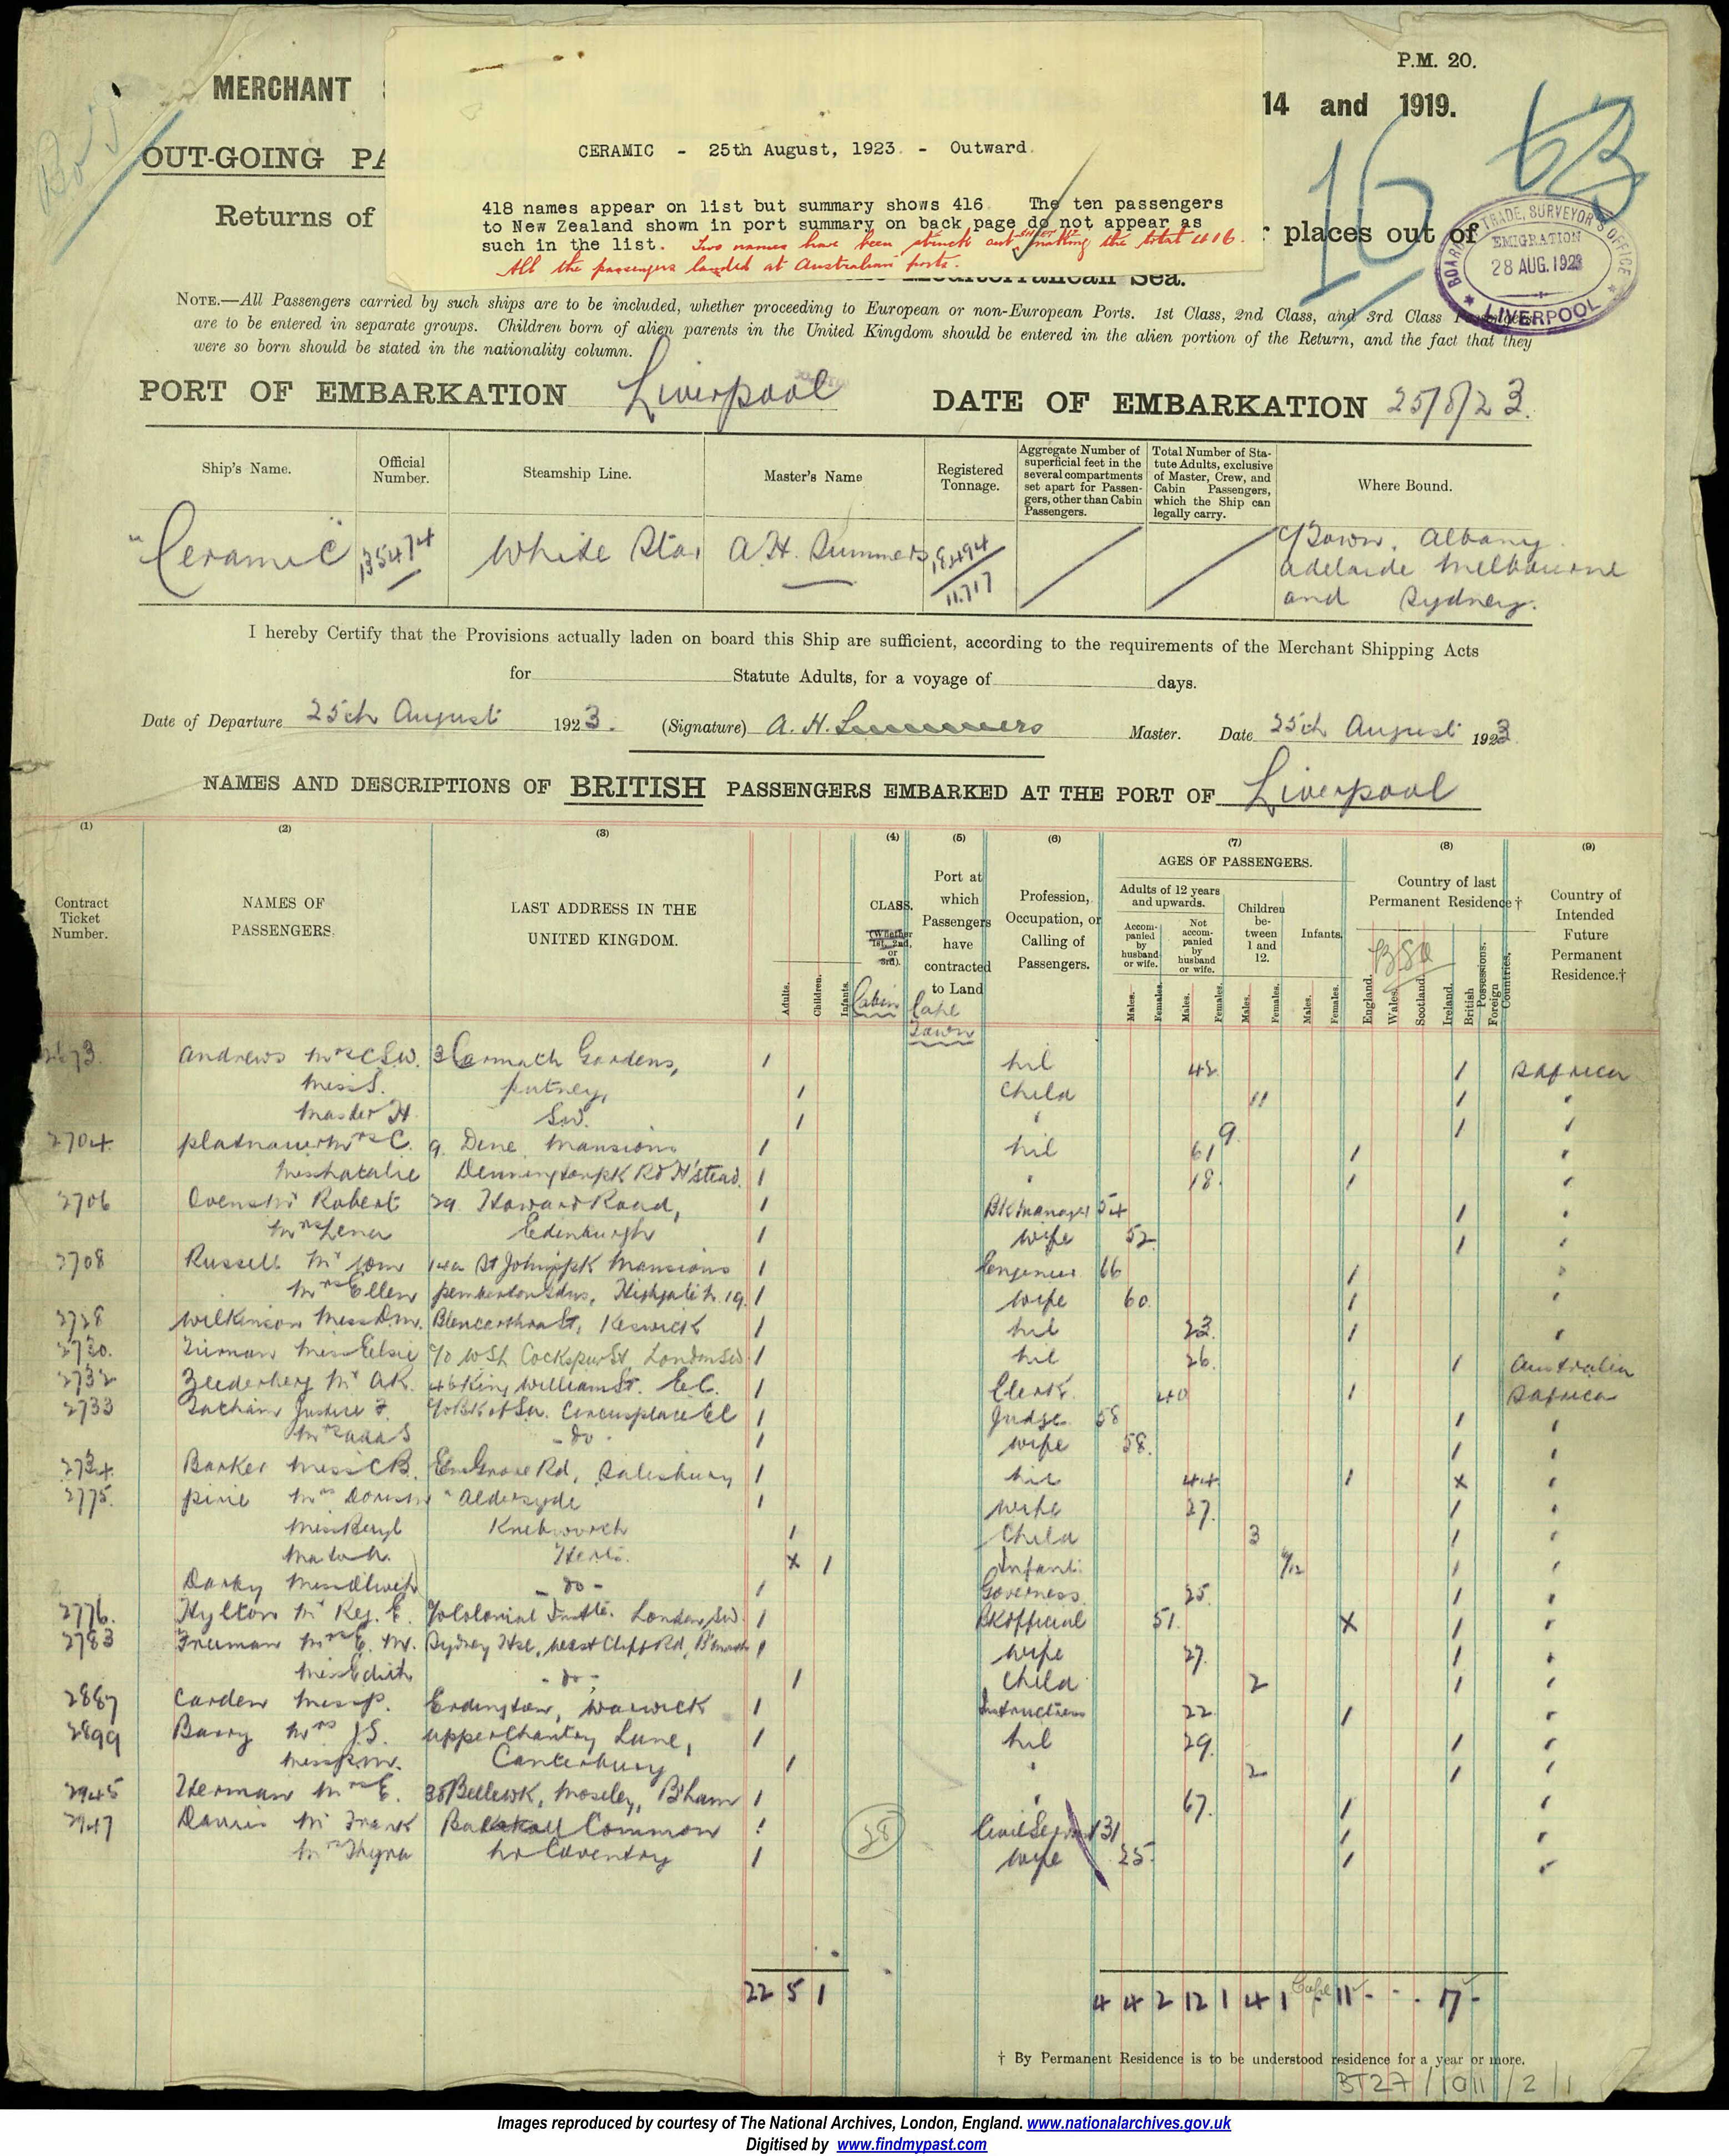 P.M. 20.
MERCHANT
14 and 1919.
OUT-GOING PA
Returns of
r places out of
16
63
BOARD TRADE, SURVEYOR'S OFFICE
EMIGRATION
28 AUG. 1923
LIVERPOOL
CERAMIC - 25th August, 1923. - Outward.
418 names appear on list but summary shows 416. The ten passengers
to New Zealand shown in port summary on back page do not appear as
such in the list. Two names have been struck out making the total 416.
All the passengers landed at Australian ports.
Mediterranean Sea.
NOTE.—All Passengers carried by such ships are to be included, whether proceeding to European or non-European Ports. 1st Class, 2nd Class, and 3rd Class Passengers
are to be entered in separate groups. Children born of alien parents in the United Kingdom should be entered in the alien portion of the Return, and the fact that they
were so born should be stated in the nationality column.
PORT OF EMBARKATION Liverpool DATE OF EMBARKATION 25/8/23.
Ship's Name.
Official Number.
Steamship Line.
Master's Name
Registered Tonnage.
Aggregate Number of superficial feet in the several compartments set apart for Passengers, other than Cabin Passengers.
Total Number of Statute Adults, exclusive of Master, Crew, and Cabin Passengers, which the Ship can legally carry.
Where Bound.
"Ceramic 135474 White Star A.H. Summers 18494 11.717
C/Town. Albany.
Adelaide Melbourne
and Sydney.
I hereby Certify that the Provisions actually laden on board this Ship are sufficient, according to the requirements of the Merchant Shipping Acts
for Statute Adults, for a voyage of days.
Date of Departure 25th August 1923. (Signature) A. H. Summers Master. Date 25th August 1923
NAMES AND DESCRIPTIONS OF BRITISH PASSENGERS EMBARKED AT THE PORT OF Liverpool
(1) (2) (3) (4) (5) (6) (7) (8) (9)
Contract Ticket Number.
NAMES OF PASSENGERS.
LAST ADDRESS IN THE UNITED KINGDOM.
Adults. Children. Infants.
CLASS. (Whether 1st, 2nd, or 3rd).
Cabin
Port at which Passengers have contracted to Land
Cape Town
Profession, Occupation, or Calling of Passengers.
AGES OF PASSENGERS.
Adults of 12 years and upwards.
Accompanied by husband or wife.
Not accompanied by husband or wife.
Children between 1 and 12.
Infants.
Males. Females. Males. Females. Males. Females. Males. Females.
Country of last Permanent Residence †
England. Wales. Scotland. Ireland. British Possessions. Foreign Countries.
Country of Intended Future Permanent Residence.†
2673. Andrews Mrs C.S.W. 3 Gardens, 1 nil 42 1 S Africa
Miss S. Putney, 1 Child 11 1 "
Master H. S.W. 1 " 9 1 "
2704. Mrs C. 9. Dene Mansions 1 nil 61 1 "
Miss Natalie Dennington Pk Rd H'stead. 1 " 18. 1 "
2706 Ovens Mr Robert 29. Howard Road, 1 BK Manager 54 1 "
Mrs Lena Edinburgh 1 wife 52. 1 "
2708 Russell Mr Tom 14a St John's Pk Mansions 1 Engineer 66 1 "
Mrs Ellen Pemberton Gdns, Highgate N. 19. 1 wife 60. 1 "
2728 Wilkinson Miss D.M. Blencathra St, Keswick 1 nil 23. 1 "
2730. Miss Elsie c/o WSL Cockspur St, London SW. 1 nil 26. 1 Australia
2732 Zeederberg Mr A.K. 46 King William St. E.C. 1 Clerk 40 1 S Africa
2733 Justice F. c/o BK of SA. Circus Place EC 1 Judge 58 1 "
Mrs Ada S - do - 1 wife 58. 1 "
2734. Barker Miss C.B. Grove Rd, Salisbury 1 nil 44. 1 x "
2775. Pirie Mrs "Aldersyde 1 wife 27. 1 "
Miss Beryl Knebworth 1 Child 3 1 "
Herts. x 1 Infant. 1 "
Darby Miss - do - 1 Governess 25. 1 "
2776. Hylton Mr Reg. E. c/o Colonial Instte. London, SW. 1 BK official 51. x 1 "
2783 Freeman Mrs E. M. Sydney Hse, West Cliff Rd, B'mouth 1 wife 27. 1 "
Miss Edith - do - 1 Child 2 1 "
2887 Carden Miss P. Erdington, Warwick 1 Instructress 22 1 "
2899 Barry Mrs J.S. Upper Chantry Lane, 1 nil 29. 1 "
Miss P.M. Canterbury 1 " 2 1 "
2945 Herman Mrs E. 38 Belle Wk, Moseley, B'ham 1 " 67. 1 "
2947 Davis Mr Frank Balskall Common 1 28 Civil Servant 31 1 "
Mrs Thyra nr Coventry 1 wife 25. 1 "
22 5 1 4 4 2 12 1 4 1 Cape - 11 - - - 17 -
† By Permanent Residence is to be understood residence for a year or more.
BT27/1011/2/1
Images reproduced by courtesy of The National Archives, London, England. www.nationalarchives.gov.uk
Digitised by www.findmypast.com